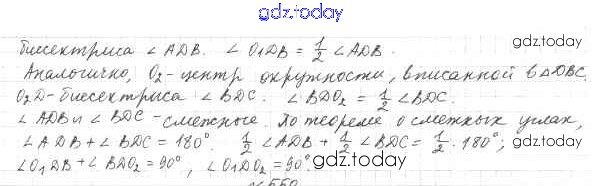 gdz.today
биссектриса ∠ADB. ∠O₁DB = 1/2 ∠ADB.
gdz.today
Аналогично, O₂ - центр окружности, вписанной в △DBC.
O₂D - биссектриса ∠BDC. ∠BDO₂ = 1/2 ∠BDC.
∠ADB и ∠BDC - смежные. По теореме о смежных углах,
∠ADB + ∠BDC = 180°. 1/2 ∠ADB + 1/2 ∠BDC = 1/2 · 180°;
gdz.today
∠O₁DB + ∠BDO₂ = 90°, ∠O₁DO₂ = 90°.
gdz.today